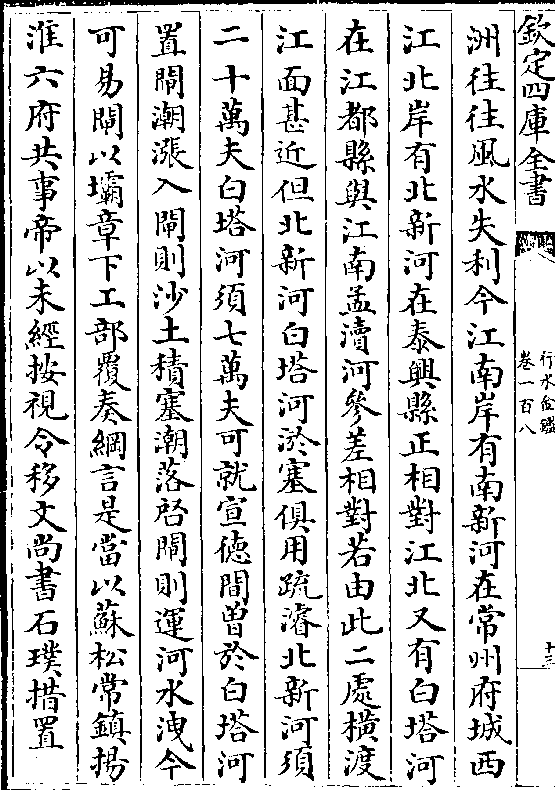 欽定四庫全書
行水金鑑
卷一百八
十三
洲往往風水失利今江南岸有南新河在常州府城西
江北岸有北新河在泰興縣正相對江北又有白塔河
在江都縣與江南孟瀆河參差相對若由此二處橫渡
江面甚近但北新河白塔河淤塞俱用疏濬北新河須
二十萬夫白塔河須七萬夫可就宣德間曽於白塔河
置閘潮漲入閘則沙土積塞潮落啓閘則運河水洩今
可易閘以壩章下工部覆奏綱言是當以蘇松常鎮揚
淮六府共事帝以未經按視令移文尚書石璞措置